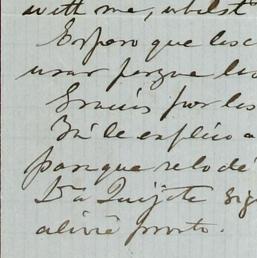 with me, whilst
Espero que les c
usar porque las
Gracias por los
Ya le explico a
para que se lo dé
Da Quijote sig
alivie pronto.